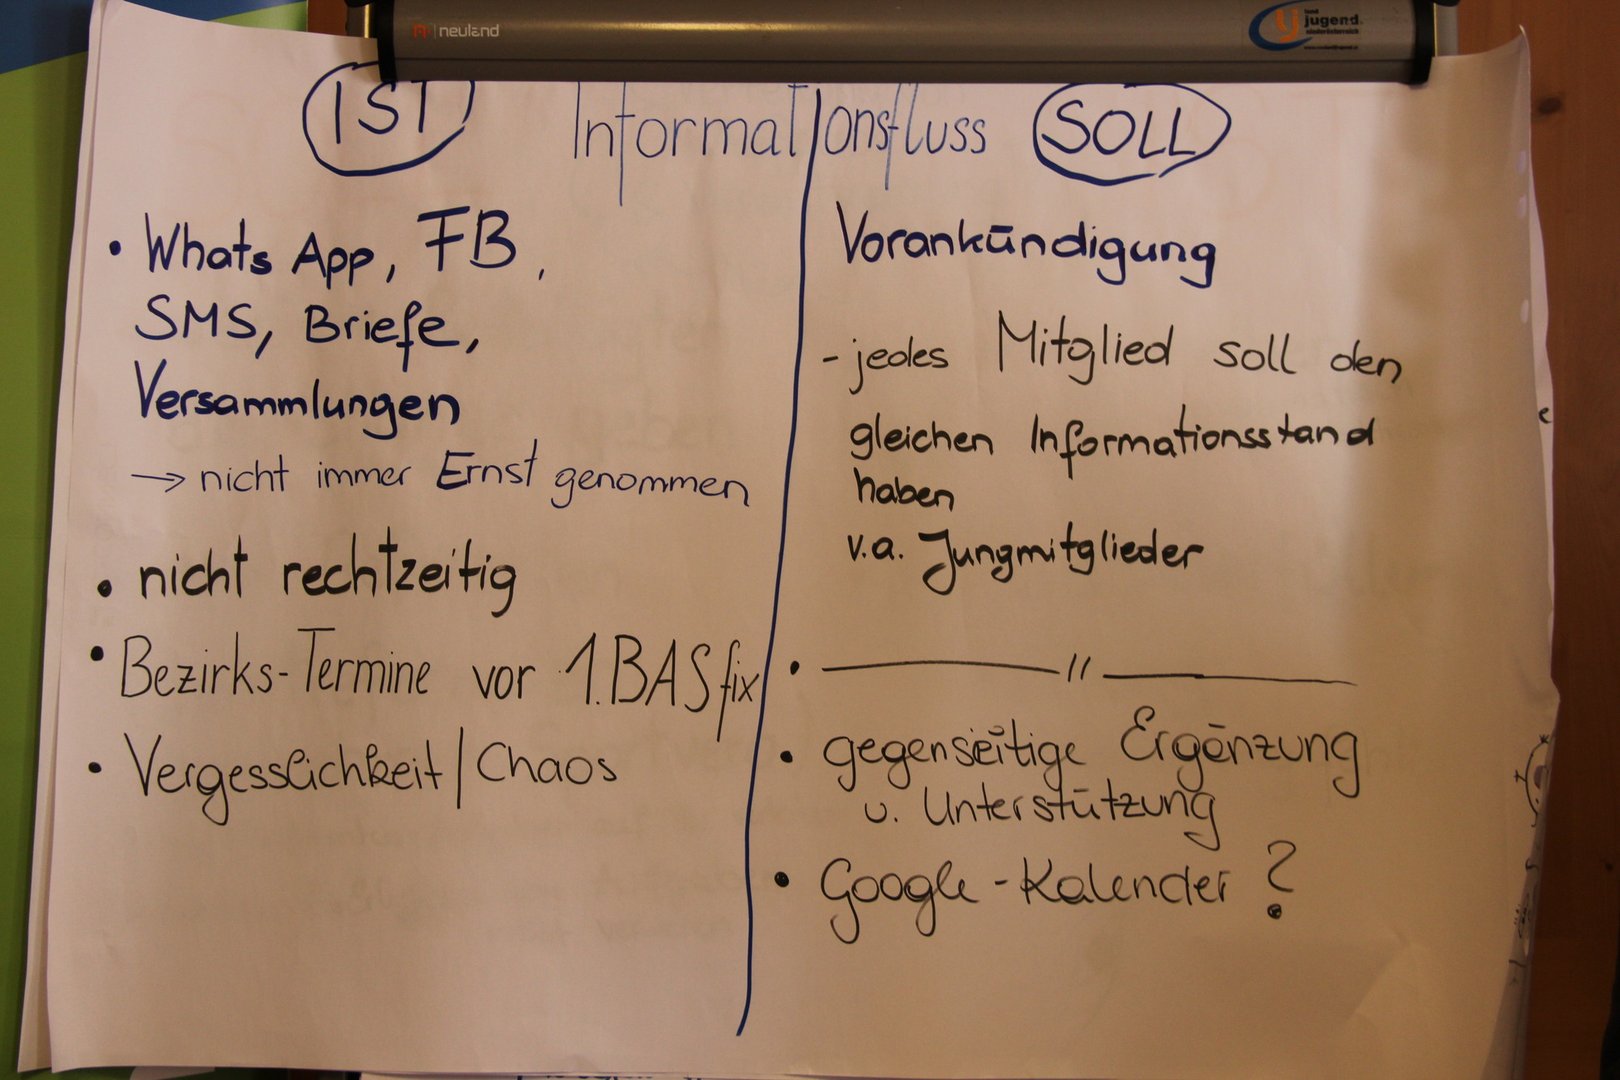 neuland
land
jugend
niederösterreich
IST
Informationsfluss
SOLL
• Whats App, FB,
SMS, Briefe,
Versammlungen
→ nicht immer Ernst genommen
• nicht rechtzeitig
• Bezirks-Termine vor 1. BAS fix
• Vergesslichkeit / Chaos
Vorankündigung
- jedes Mitglied soll den
gleichen Informationsstand
haben
v.a. Jungmitglieder
• —— " ——
• gegenseitige Ergänzung
u. Unterstützung
• Google - Kalender ?